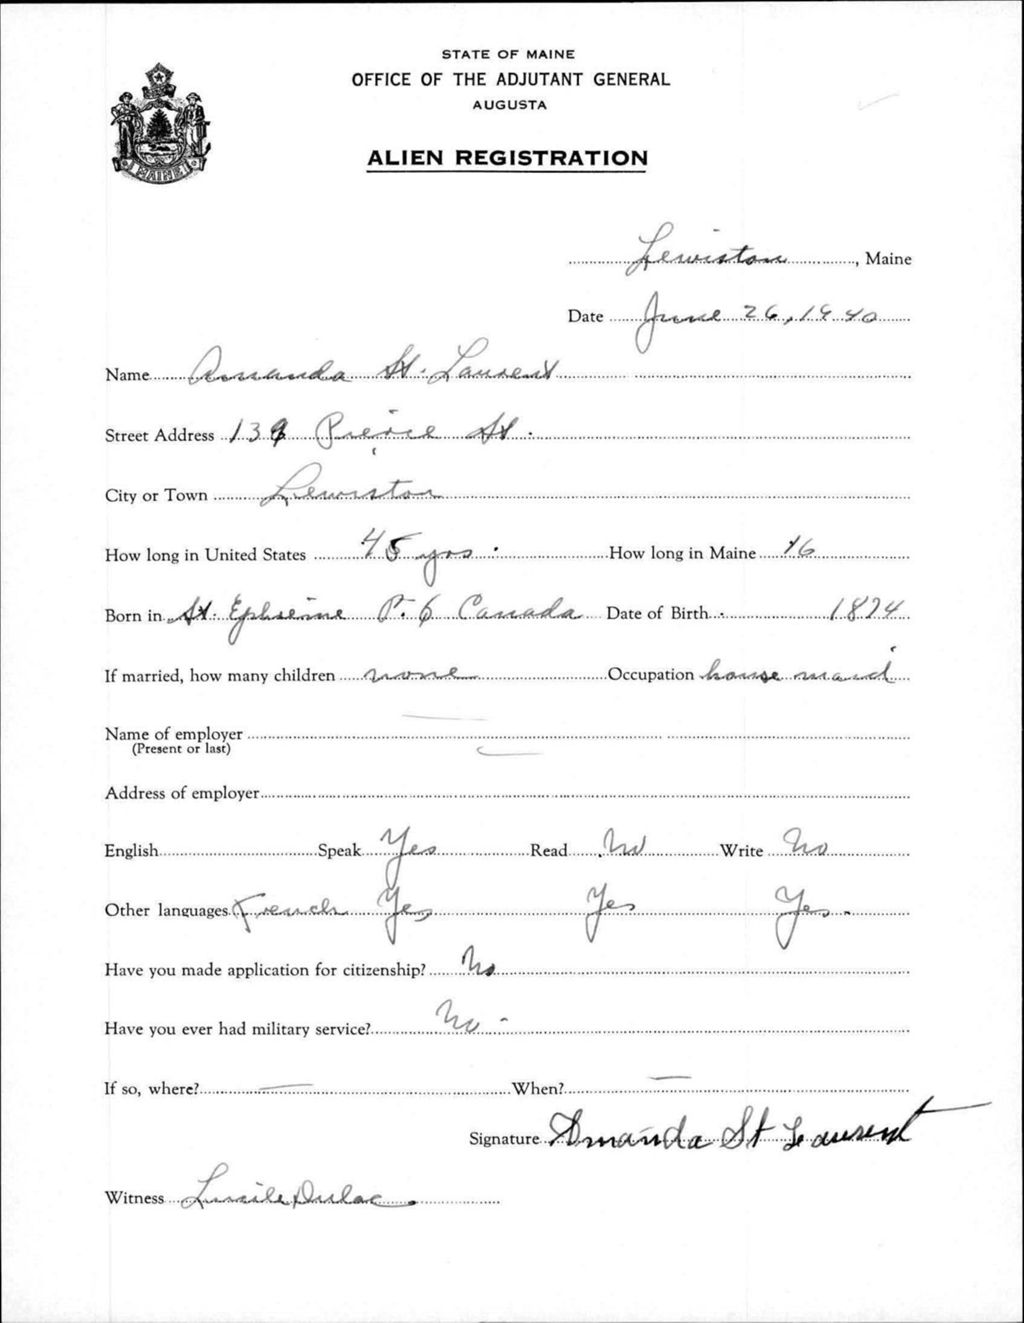 STATE OF MAINE
OFFICE OF THE ADJUTANT GENERAL
AUGUSTA
ALIEN REGISTRATION
MAINE
Lewiston, Maine
Date June 26, 1940
Name Amanda St. Laurent
Street Address 139 Pierce St.
City or Town Lewiston
How long in United States 45 yrs. How long in Maine 16
Born in St. Ephreme P. Q Canada Date of Birth 1874
If married, how many children none Occupation house maid
Name of employer
(Present or last)
Address of employer
English Speak Yes Read No Write No
Other languages French Yes Yes Yes.
Have you made application for citizenship? No
Have you ever had military service? No
If so, where? — When? —
Signature Amanda St Laurent
Witness Lucile Dulac